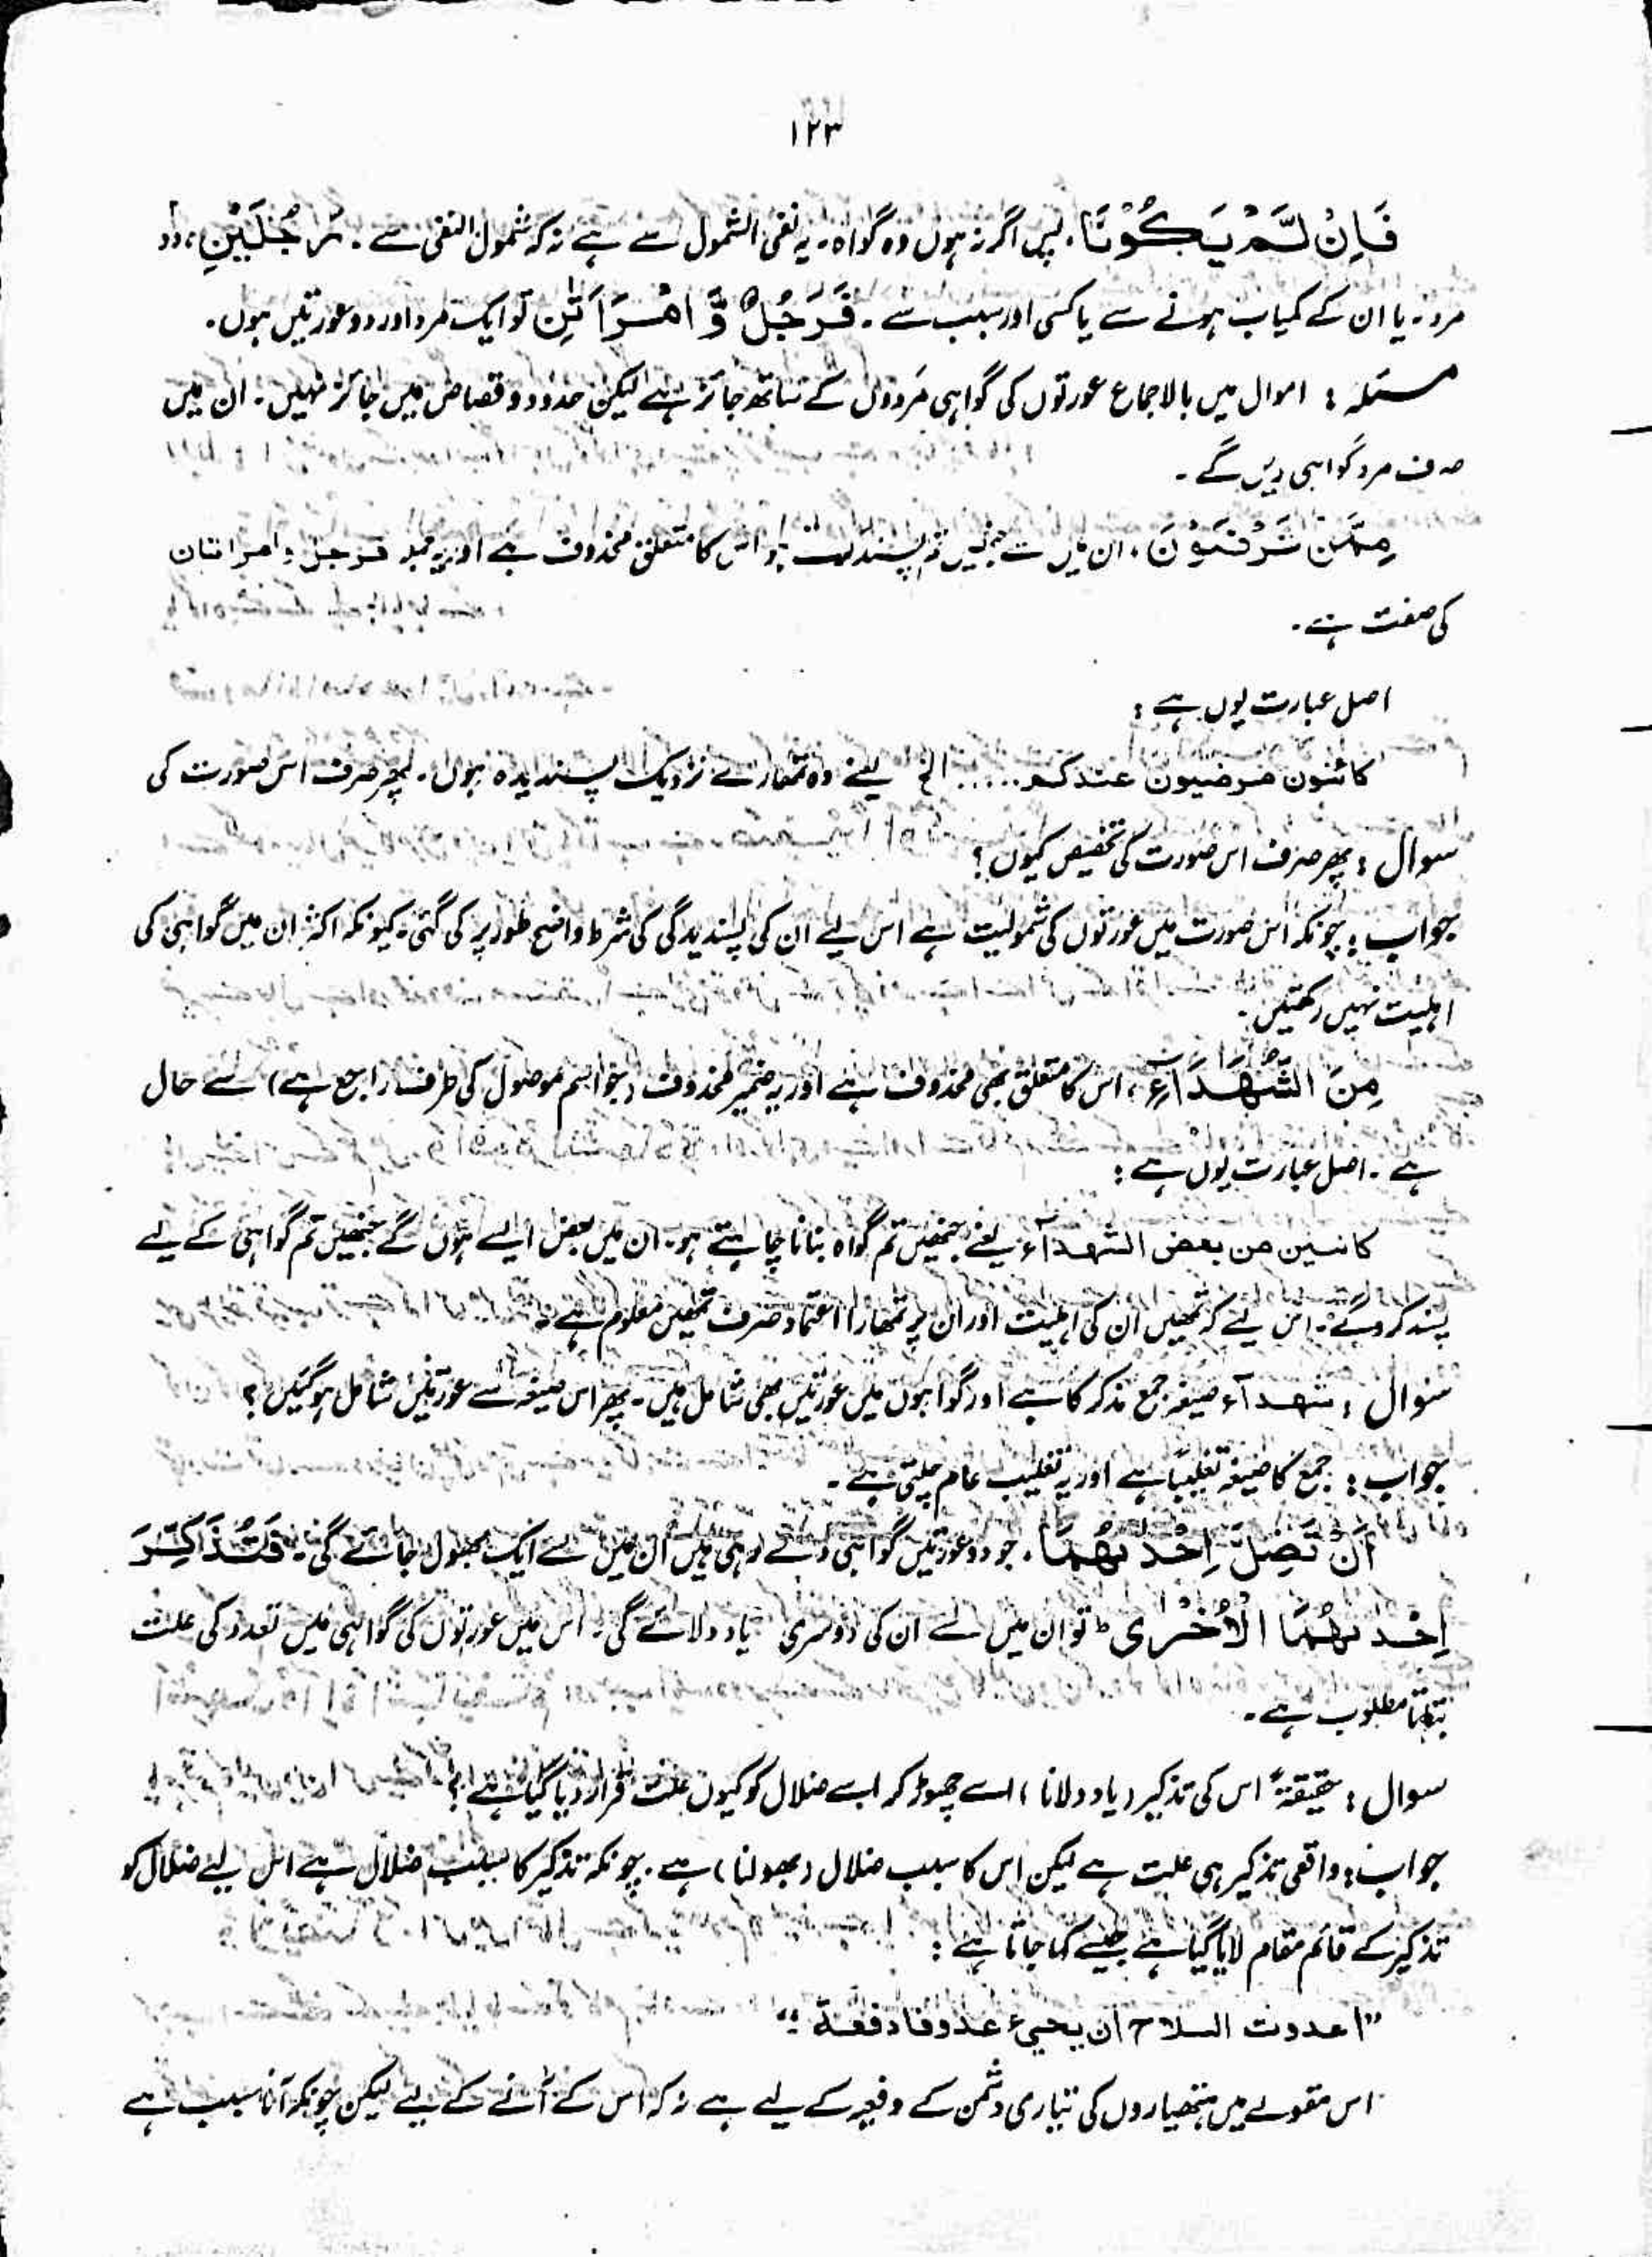 ۱۲۳
فَاِنْ لَّمْ يَكُوْنَا، پس اگر نہ ہوں وہ گواہ۔ یہ نفی الشمول سے ہے نہ کہ شمول النفی سے۔ رَجُلَيْنِ، دو
مرد۔ یا ان کے کمیاب ہونے سے یا کسی اور سبب سے۔ فَرَجُلٌ وَّ امْرَاَتٰنِ تو ایک مرد اور دو عورتیں ہوں۔
مسئلہ : اموال میں بالاجماع عورتوں کی گواہی مردوں کے ساتھ جائز ہے لیکن حدود و قصاص میں جائز نہیں۔ ان میں
صرف مرد گواہی دیں گے۔
مِمَّنْ تَرْضَوْنَ، ان میں سے جنہیں تم پسند کرتے ہو اس کا متعلق محذوف ہے اور یہ جملہ فرجل وامراتان
کی صفت ہے۔
اصل عبارت یوں ہے :
کائنون مرضیون عندکم..... الخ یعنے وہ تمھارے نزدیک پسندیدہ ہوں۔ پھر صرف اس صورت کی
سوال : پھر صرف اس صورت کی تخصیص کیوں؟
جواب : چونکہ اس صورت میں عورتوں کی شمولیت ہے اس لیے ان کی پسندیدگی کی شرط واضح طور پر کی گئی۔ کیونکہ اکثر ان میں گواہی کی
اہلیت نہیں رکھتیں۔
مِنَ الشُّهَدَآءِ، اس کا متعلق بھی محذوف ہے اور یہ ضمیر محذوف (جو اسم موصول کی طرف راجع ہے) سے حال
ہے۔ اصل عبارت یوں ہے :
کائنین من بعض الشهدآء یعنے جنھیں تم گواہ بنانا چاہتے ہو۔ ان میں بعض ایسے ہوں گے جنھیں تم گواہی کے لیے
پسند کرو گے۔ اس لیے کہ تمھیں ان کی اہلیت اور ان پر تمھارا اعتماد صرف تمھیں معلوم ہے۔
سوال : شهدآء صیغہ جمع مذکر کا ہے اور گواہوں میں عورتیں بھی شامل ہیں۔ پھر اس صیغہ سے عورتیں شامل ہو گئیں؟
جواب : جمع کا صیغہ تغلیبًا ہے اور یہ تغلیب عام چلتی ہے۔
اَنْ تَضِلَّ اِحْدٰىهُمَا، جو دو عورتیں گواہی دے رہی ہیں ان میں سے ایک بھول جائے گی۔ فَتُذَكِّرَ
اِحْدٰىهُمَا الْاُخْرٰى ط تو ان میں سے ان کی دوسری یاد دلائے گی۔ اس میں عورتوں کی گواہی میں تعدد کی علت
بتانا مطلوب ہے۔
سوال : حقیقۃً اس کی تذکیر (یاد دلانا) اسے چھوڑ کر اسے ضلال کو کیوں علت قرار دیا گیا ہے؟
جواب : واقعی تذکیر ہی علت ہے لیکن اس کا سبب ضلال (بھولنا) ہے۔ چونکہ تذکیر کا سبب ضلال ہے اس لیے ضلال کو
تذکیر کے قائم مقام لایا گیا ہے جیسے کہا جاتا ہے :
"اعددت السلاح ان یجیء عدوفادفعة"
اس مقولے میں ہتھیاروں کی تیاری دشمن کے دفیعہ کے لیے ہے نہ کہ اس کے آنے کے لیے لیکن چونکہ آنا سبب ہے